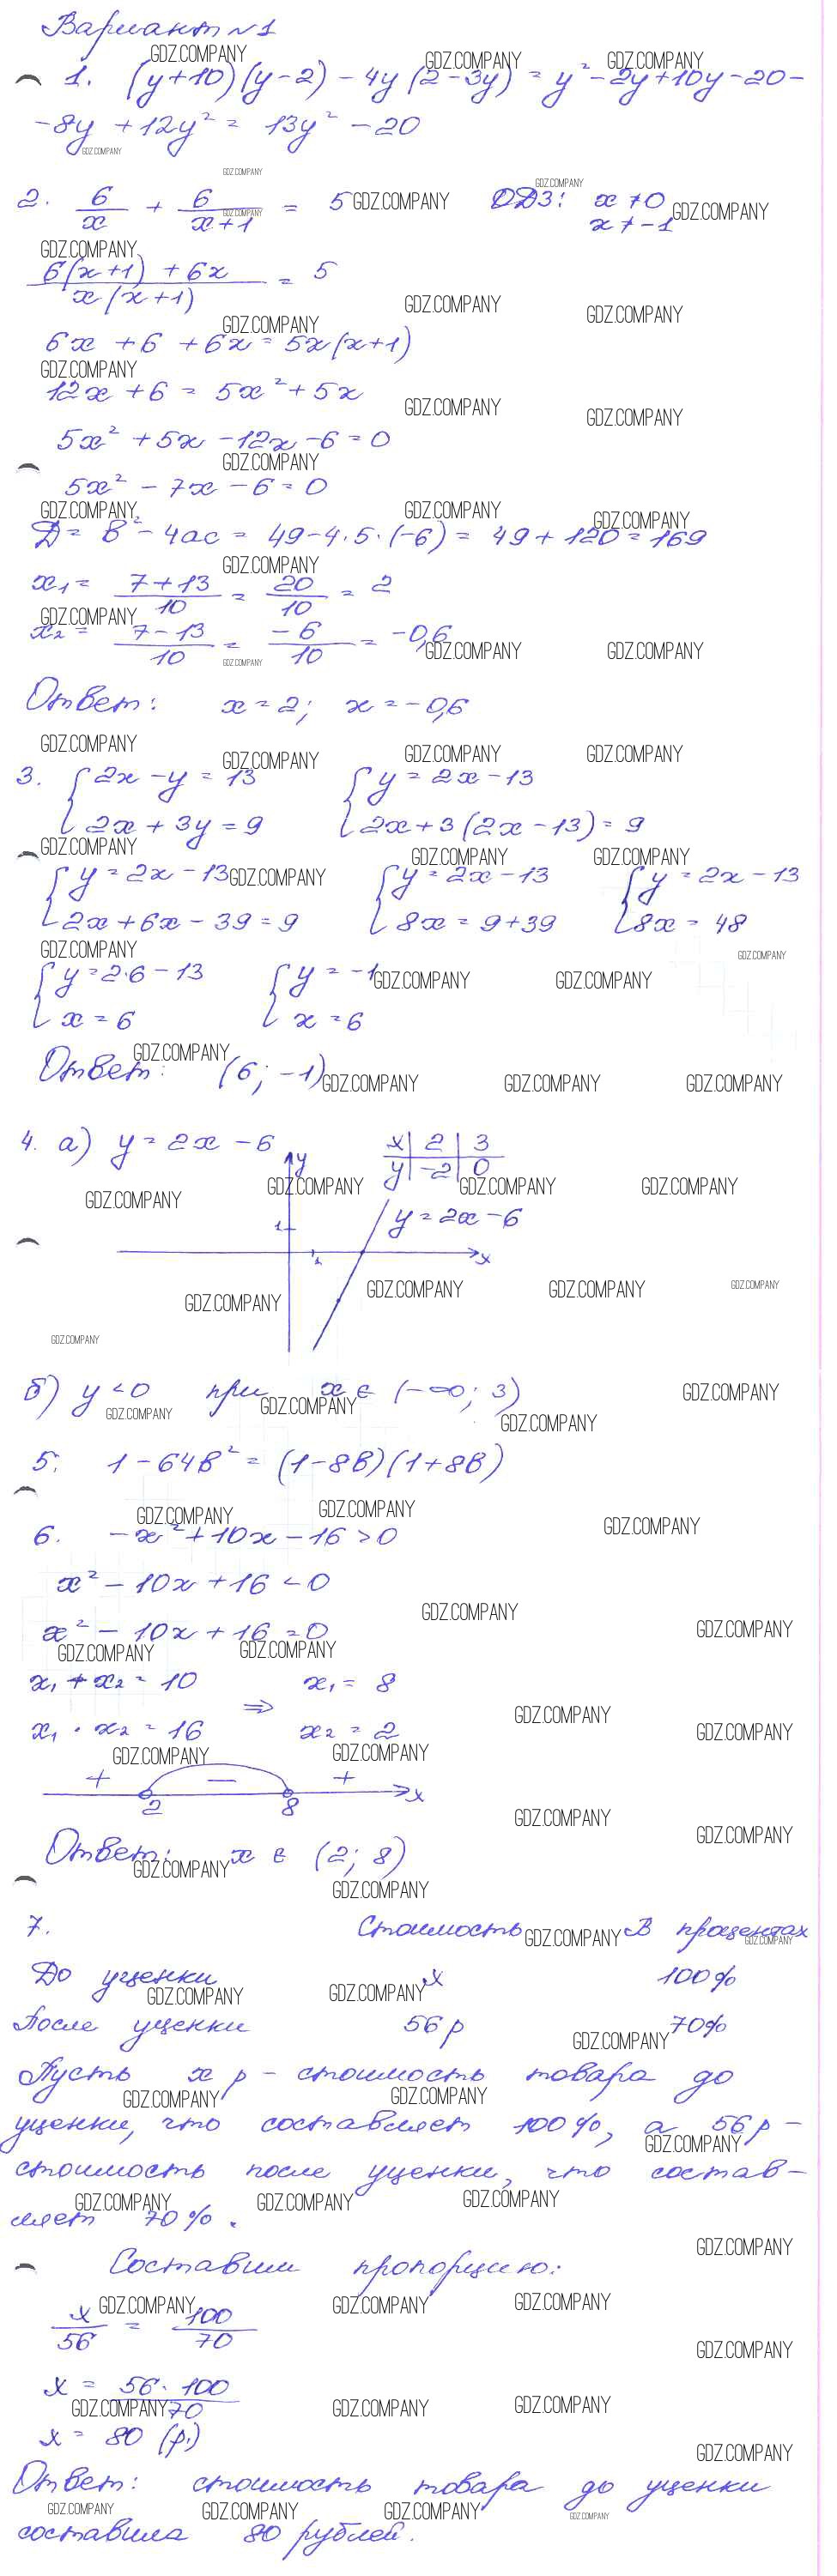 Вариант №1
1. (y+10)(y-2) - 4y(2-3y) = y² - 2y + 10y - 20 -
- 8y + 12y² = 13y² - 20
2. 6/x + 6/(x+1) = 5 ОДЗ: x ≠ 0
x ≠ -1
(6(x+1) + 6x)/(x(x+1)) = 5
6x + 6 + 6x = 5x(x+1)
12x + 6 = 5x² + 5x
5x² + 5x - 12x - 6 = 0
5x² - 7x - 6 = 0
Д = в² - 4ac = 49 - 4·5·(-6) = 49 + 120 = 169
x₁ = (7+13)/10 = 20/10 = 2
x₂ = (7-13)/10 = -6/10 = -0,6
Ответ: x = 2; x = -0,6
3. { 2x - y = 13 { y = 2x - 13
2x + 3y = 9 2x + 3(2x - 13) = 9
{ y = 2x - 13 { y = 2x - 13 { y = 2x - 13
2x + 6x - 39 = 9 8x = 9 + 39 8x = 48
{ y = 2·6 - 13 { y = -1
x = 6 x = 6
Ответ: (6; -1)
4. а) y = 2x - 6 x | 2 | 3
y y | -2 | 0
y = 2x - 6
1
1 x
б) y < 0 при x ∈ (-∞; 3)
5. 1 - 64в² = (1 - 8в)(1 + 8в)
6. -x² + 10x - 16 > 0
x² - 10x + 16 < 0
x² - 10x + 16 = 0
x₁ + x₂ = 10 x₁ = 8
⇒
x₁ · x₂ = 16 x₂ = 2
+ - +
2 8 x
Ответ: x ∈ (2; 8)
7. Стоимость В процентах
До уценки x 100%
После уценки 56 р 70%
Пусть x р - стоимость товара до
уценки, что составляет 100%, а 56 р -
стоимость после уценки, что состав-
ляет 70%.
Составим пропорцию:
x/56 = 100/70
x = (56·100)/70
x = 80 (р.)
Ответ: стоимость товара до уценки
составила 80 рублей.
GDZ.COMPANY